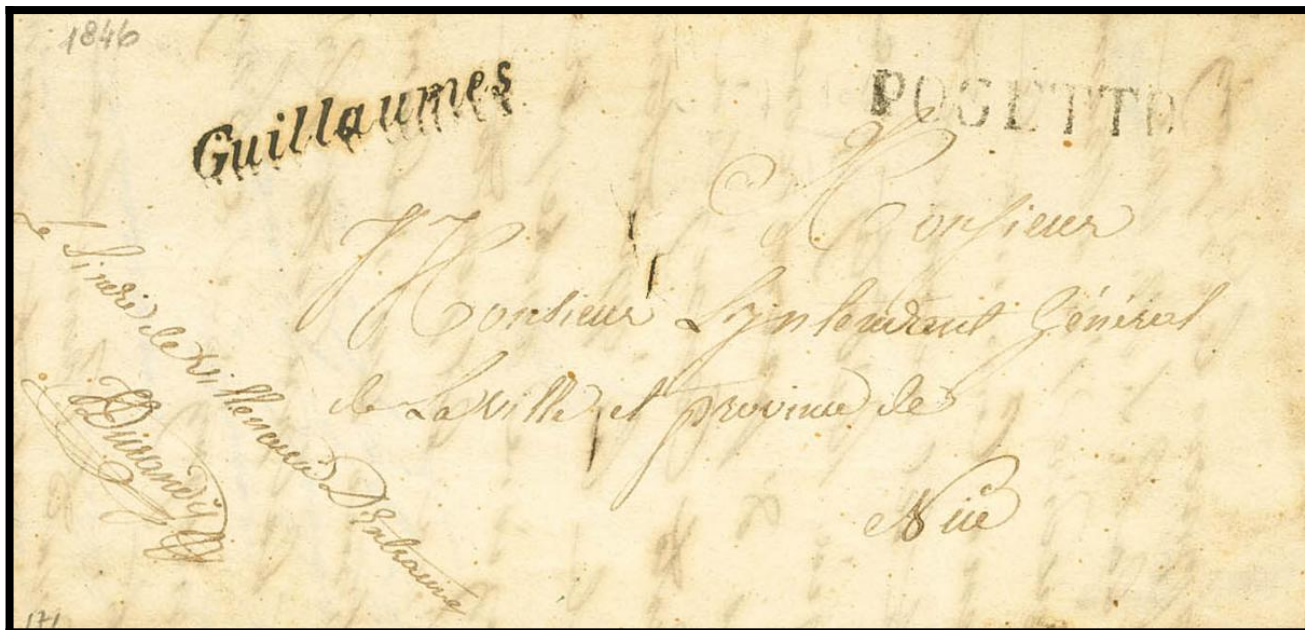 1846
Guillaumes
POGETTO
Monsieur
Monsieur L'yntendant Général
de La ville et province de
Nice
Le Sindic de Villeneuve D'Entraunes
171